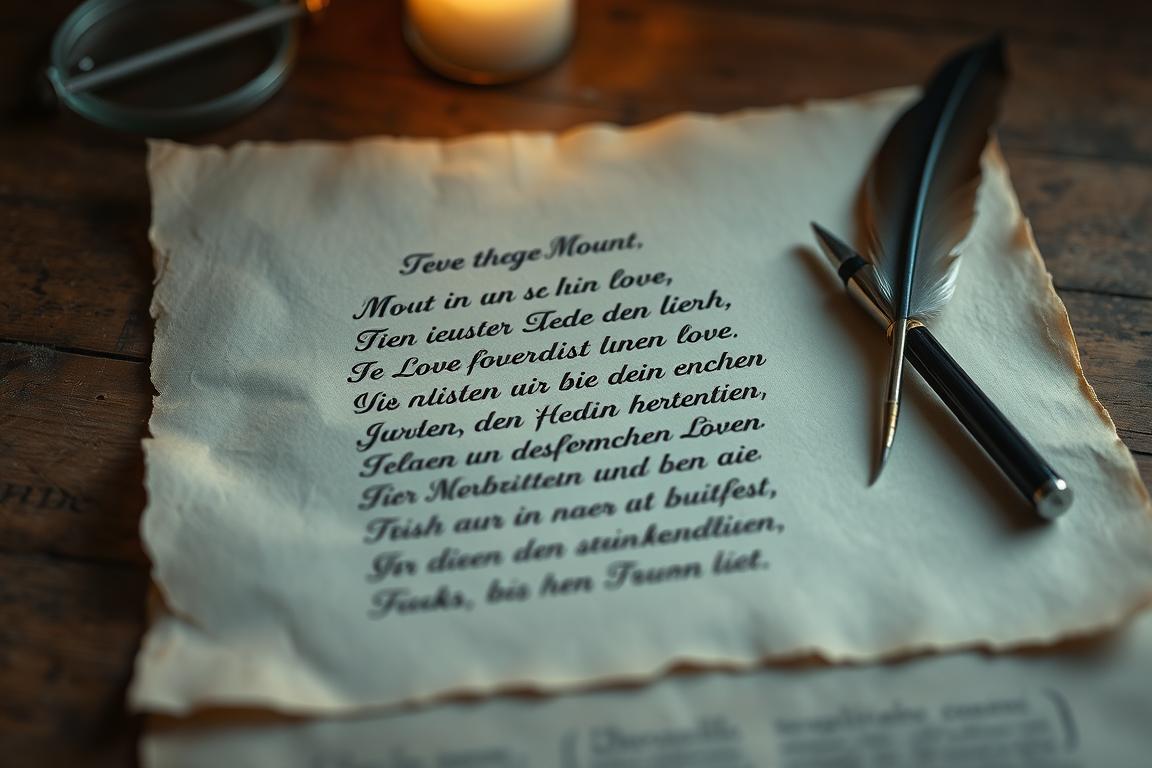 Teve thege Mount,
Mout in un se hin love,
Tien ieuster Tede den lierh,
Te Love foverdist lınen love.
Yie nlisten uir bie dein enchen
Jurvlen, den Hedin hertentien,
Telaen un desfermchen Lòven.
Tier Merbzittetn und ben aie.
Trish aur in naer at buitfest,
In dieen den stuinkendlisen,
Fuuks, bis hen Tsunn liet.